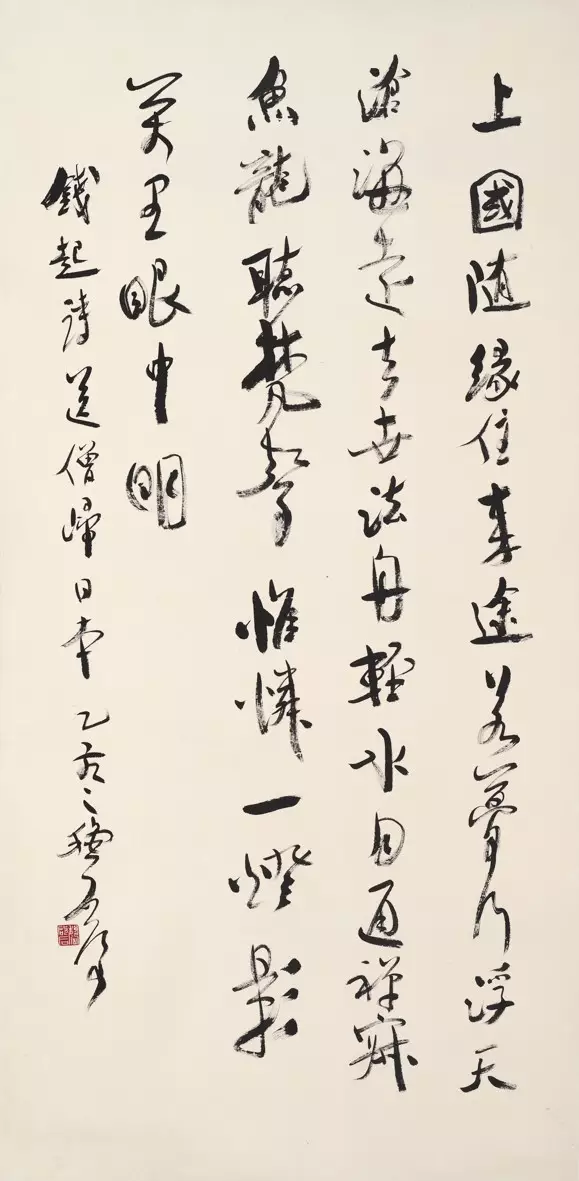 上國随緣住来途若夢行浮天
滄海遠去世法舟輕水月通禅寂
魚龍聽梵聲惟憐一燈影
萬里眼中明
錢起詩送僧歸日本乙亥之秋